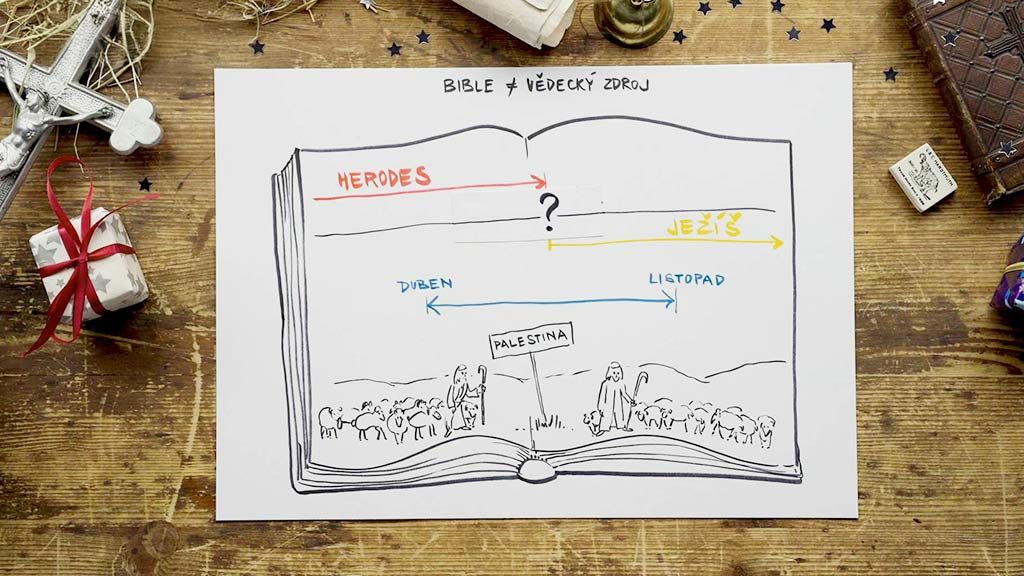 BIBLE ≠ VĚDECKÝ ZDROJ
HERODES
?
JEŽÍŠ
DUBEN
LISTOPAD
PALESTINA